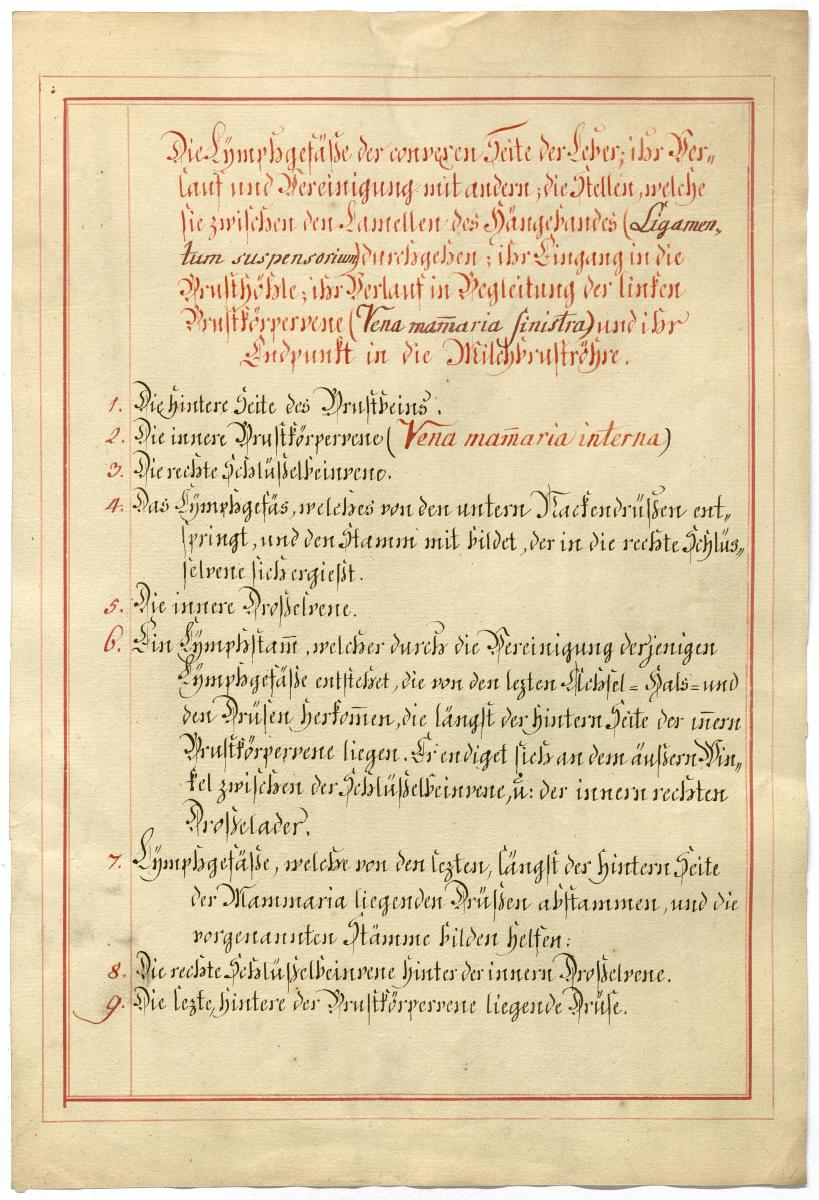 Die Lymphgefäße der convexen Seite der Leber; ihr Ver„
lauf und Vereinigung mit andern; die Stellen, welche
sie zwischen den Lamellen des Hängebandes (Ligamen„
tum suspensorium) durchgehen; ihr Eingang in die
Brusthöhle; ihr Verlauf in Begleitung der linken
Brustkörpervene (Vena mam̅aria sinistra) und ihr
Endpunkt in die Milchbruströhre.
1. Die hintere Seite des Brustbeins.
2. Die innere Brustkörpervene (Vena mam̅aria interna)
3. Die rechte Schlüßelbeinvene.
4. Das Lymphgefäs, welches von den untern Nackendrüßen ent„
springt, und den Stamm mit bildet, der in die rechte Schlüs„
selvene sich ergießt.
5. Die innere Droßelvene.
6. Ein Lymphstam̅, welcher durch die Vereinigung derjenigen
Lymphgefäße entstehet, die von den lezten Achsel= Hals= und
den Drüsen herkom̅en, die längst der hintern Seite der in̅ern
Brustkörpervene liegen. Er endiget sich an dem äußern Win„
kel zwischen der Schlüßelbeinvene, u: der innern rechten
Droßelader.
7. Lymphgefäße, welche von den lezten, längst der hintern Seite
der Mammaria liegenden Drüßen abstammen, und die
vorgenannten Stämme bilden helfen:
8. Die rechte Schlüßelbeinvene hinter der innern Droßelvene.
9. Die lezte, hintere der Brustkörpervene liegende Drüse.